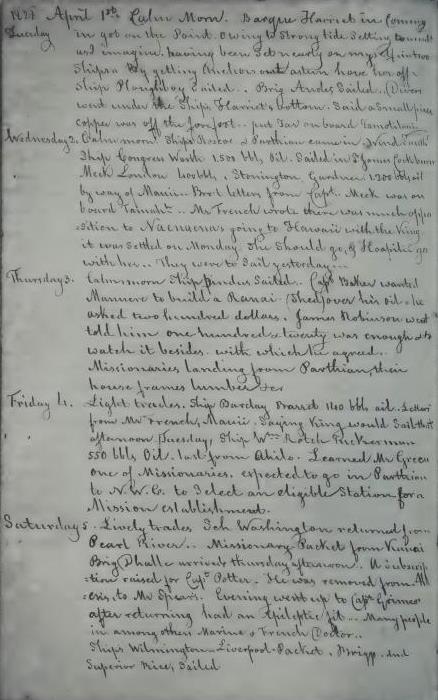 April 1st Calm Morn. Barque Harriet in coming
Tuesday in got on the Point. Owing to Strong tide Setting to
us I imagine. having been Set nearly on
Ships. By getting Anchors out astern have her off.
Ship Ploughboy Sailed.. Brig Sailed. (Divers
went under the Ships Harriet's bottom. Said a Small piece
copper was off the forefoot.. put Tar on board
Wednesday 2. Calm morn. Ships Roscoe & Parthian came in Wind South
Ship Congress Worth 1.500 bbls Oil. Sailed in St James Cockburn
Meek London 400bbls. Stonington, Gardner. 1.200 bbls oil
by way of Maui.. Brot letters from Capt. Meek was on
board .. Mr French wrote there was much oppo
sition to going to Hawaii with the King
it was Settled on Monday. She Should go, & Hoapili go
with her.. They were to Sail yesterday...
Thursday 3. Calm morn Ship Sailed.. Capt Baker wanted
to build a Ranai (Shed) over his oil. he
asked two hundred dollars. James Robinson went
told him one hundred & twenty was enough & to
watch it besides. with which he agreed.
Missionaries landing from Parthian, their
house frames lumber &cr
Friday 4. Light trades. Ship Barclay Barrett 1400 bbls oil. Letters
from Mr French, Maui. Saying King would Sail that
afternoon, Tuesday, Ship Wm Rotch
550 bbls Oil. last from Ahilo. Learned Mr Green
one of Missionaries. expected to go in Parthian
to N.W.C. to Select an eligible Station for a
Mission establishment.
Saturday 5. Lively trades Sch Washington returned from
Pearl River.. Missionary Packet from
Brig Dhaulle arrived thursday afternoon. A Subscrip
tion raised for Capt Potter. He was removed from
to Mr Spears. Evening went up to Capt
after returning had an Epileptic fit... Many people
in among others Marine & French Doctor..
Ships Wilmington & Liverpool Packet. and
Superior Rice, Sailed